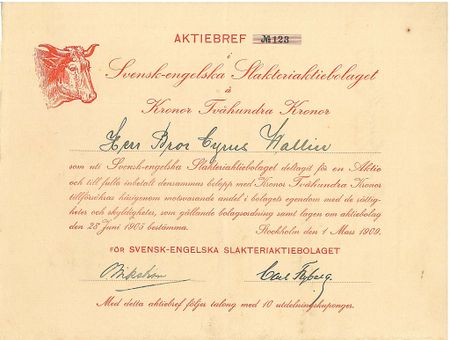 AKTIEBREF № 123
i
Svensk-engelska Slakteriaktiebolaget
à
Kronor Tvåhundra Kronor
Herr Bror Cyrus Wallin
som uti Svensk-engelska Slakteriaktiebolaget deltagit för en Aktie
och till fullo inbetalt densammas belopp med Kronor Tvåhundra Kronor
tillförsäkras härigenom motsvarande andel i bolagets egendom med de rättig-
heter och skyldigheter, som gällande bolagsordning samt lagen om aktiebolag
den 28 Juni 1905 bestämma.
Stockholm den 1 Mars 1909.
FÖR SVENSK-ENGELSKA SLAKTERIAKTIEBOLAGET
Carl
Med detta aktiebref följer talong med 10 utdelningskuponger.